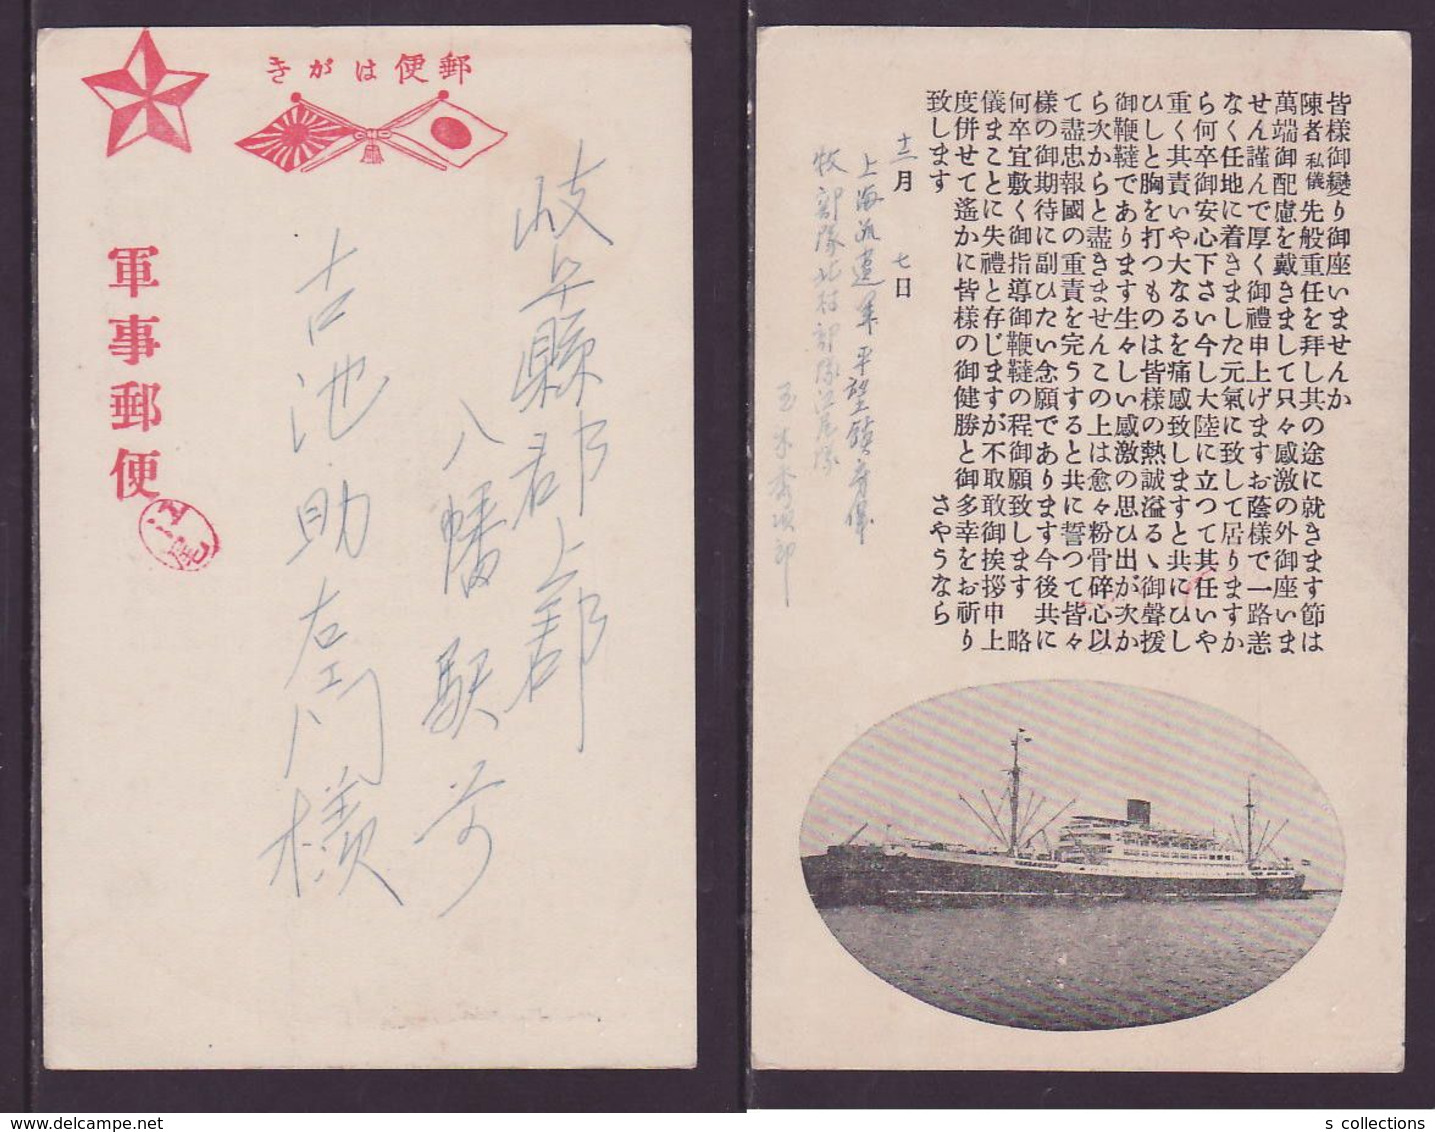 郵便はがき
軍事郵便
岐阜縣郡上郡
八幡駅前
吉池助左衛門様
皆様御變り御座いませんか
陳者私儀先般重任を拜し其の途に就きます節は
萬端御配慮を戴きまして只々感激の外御座いま
せん謹んで厚く御禮申上げますお蔭様で一路恙
なく任地に着きました元氣に致して居りますか
ら何卒御安心下さい今し大陸に立つて其任いや
重く其責いや大なるを痛感致しますと共にひし
ひしと胸を打つものは皆様の熱誠溢るゝ御聲援
御鞭韃であります生々しい感激の思ひ出が次か
ら次からと盡きませんこの上は愈々粉骨碎心以
て盡忠報國の重責を完うすると共に誓つて皆々
様の御期待に副ひたい念願であります今後共に
何卒宜敷く御指導御鞭韃の程御願致します 略
儀まことに失禮と存じますが不取敢御挨拶申上
度併せて遙かに皆様の御健勝と御多幸をお祈り
致します さやうなら
十二月 七日
上海派遣軍平望鎮守備
牧部隊北村部隊江尾隊
s collections